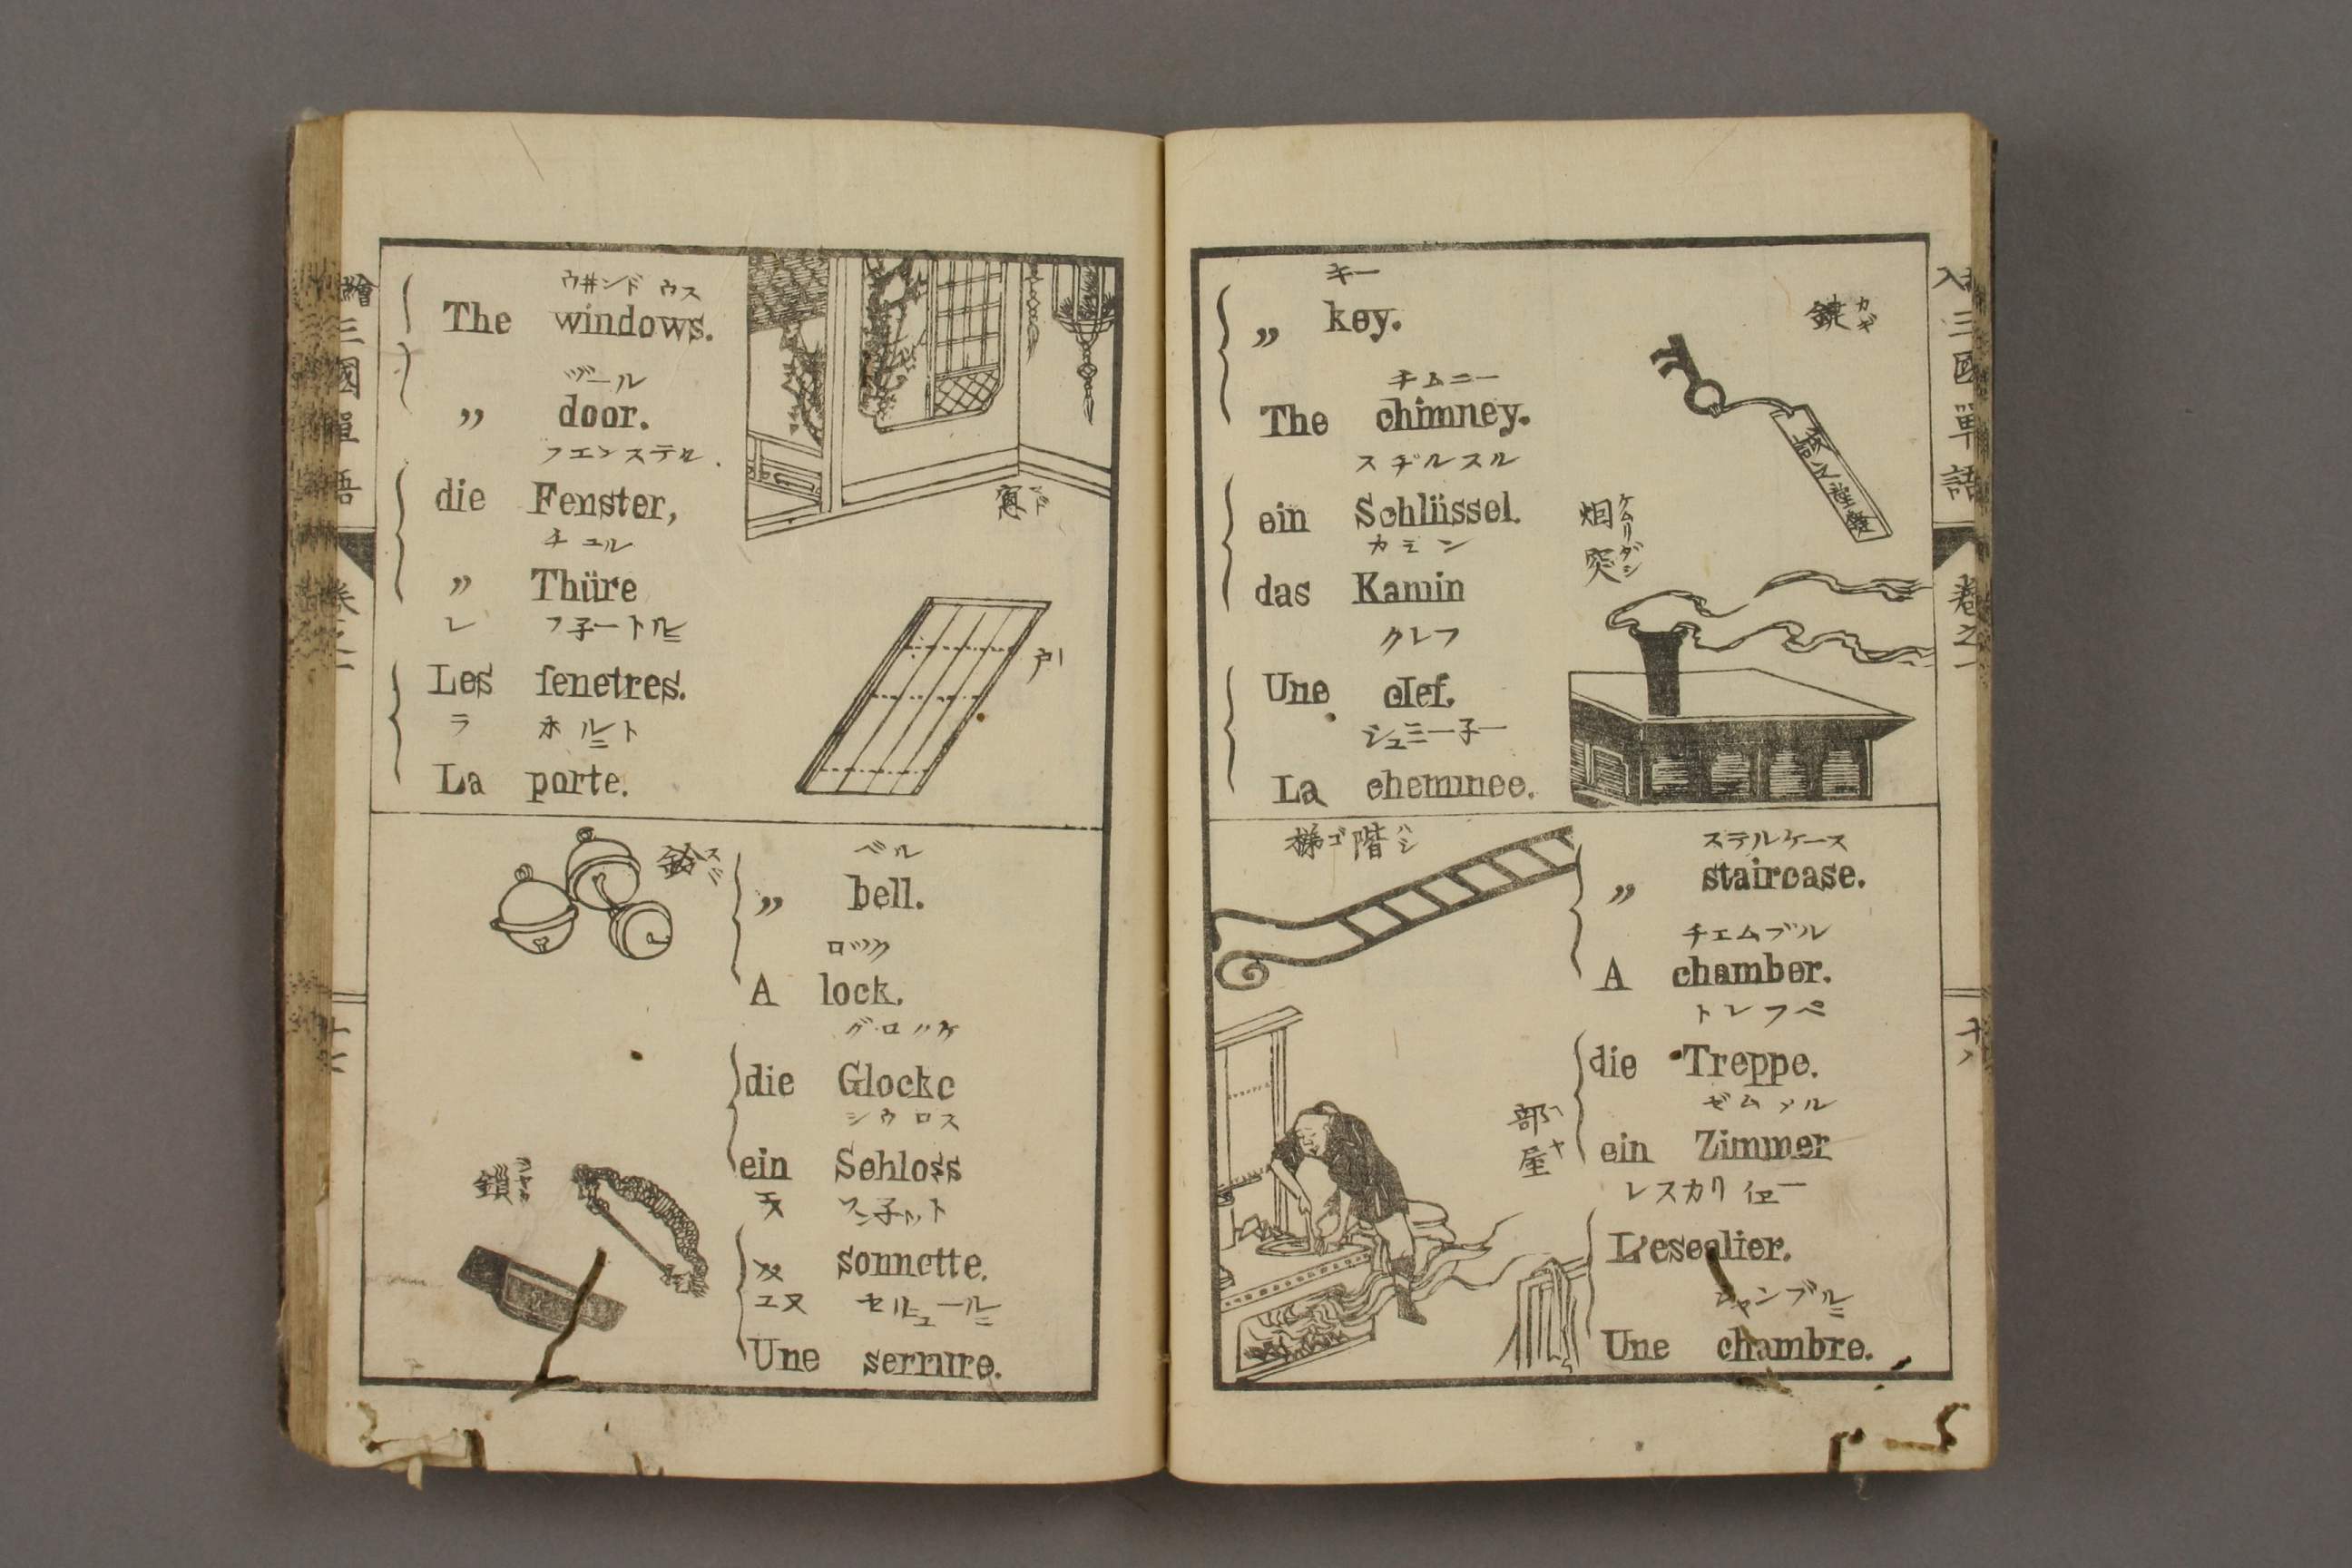 ウ井ンド ウス
The windows.
ヅール
„ door.
フエンステル
die Fenster,
チユル
„ Thüre
レ フ子ートル
Les fenetres.
ラ ホルト
La porte.
窓 マド
戸 ト
ベル
„ bell.
ロツク
A lock.
グロツケ
die Glocke
シウロス
ein Schloss
ソン子ツト
sonnette.
セルユール
Une serrure.
鈴 スヾ
鎖
三國單語
キー
„ key.
チムニー
The chimney.
スヂルスル
ein Schlüssel.
カミン
das Kamin
クレフ
Une clef.
シユミー子ー
La cheminee.
カギ
烟突 ケムリダシ
ステルケース
„ staircase.
チエムブル
A chamber.
トレフペ
die Treppe.
ゼムメル
ein Zimmer
レスカリ
L'escalier.
シヤンブル
Une chambre.
階梯 ハシゴ
部屋 ヘヤ
三國單語
卷之一